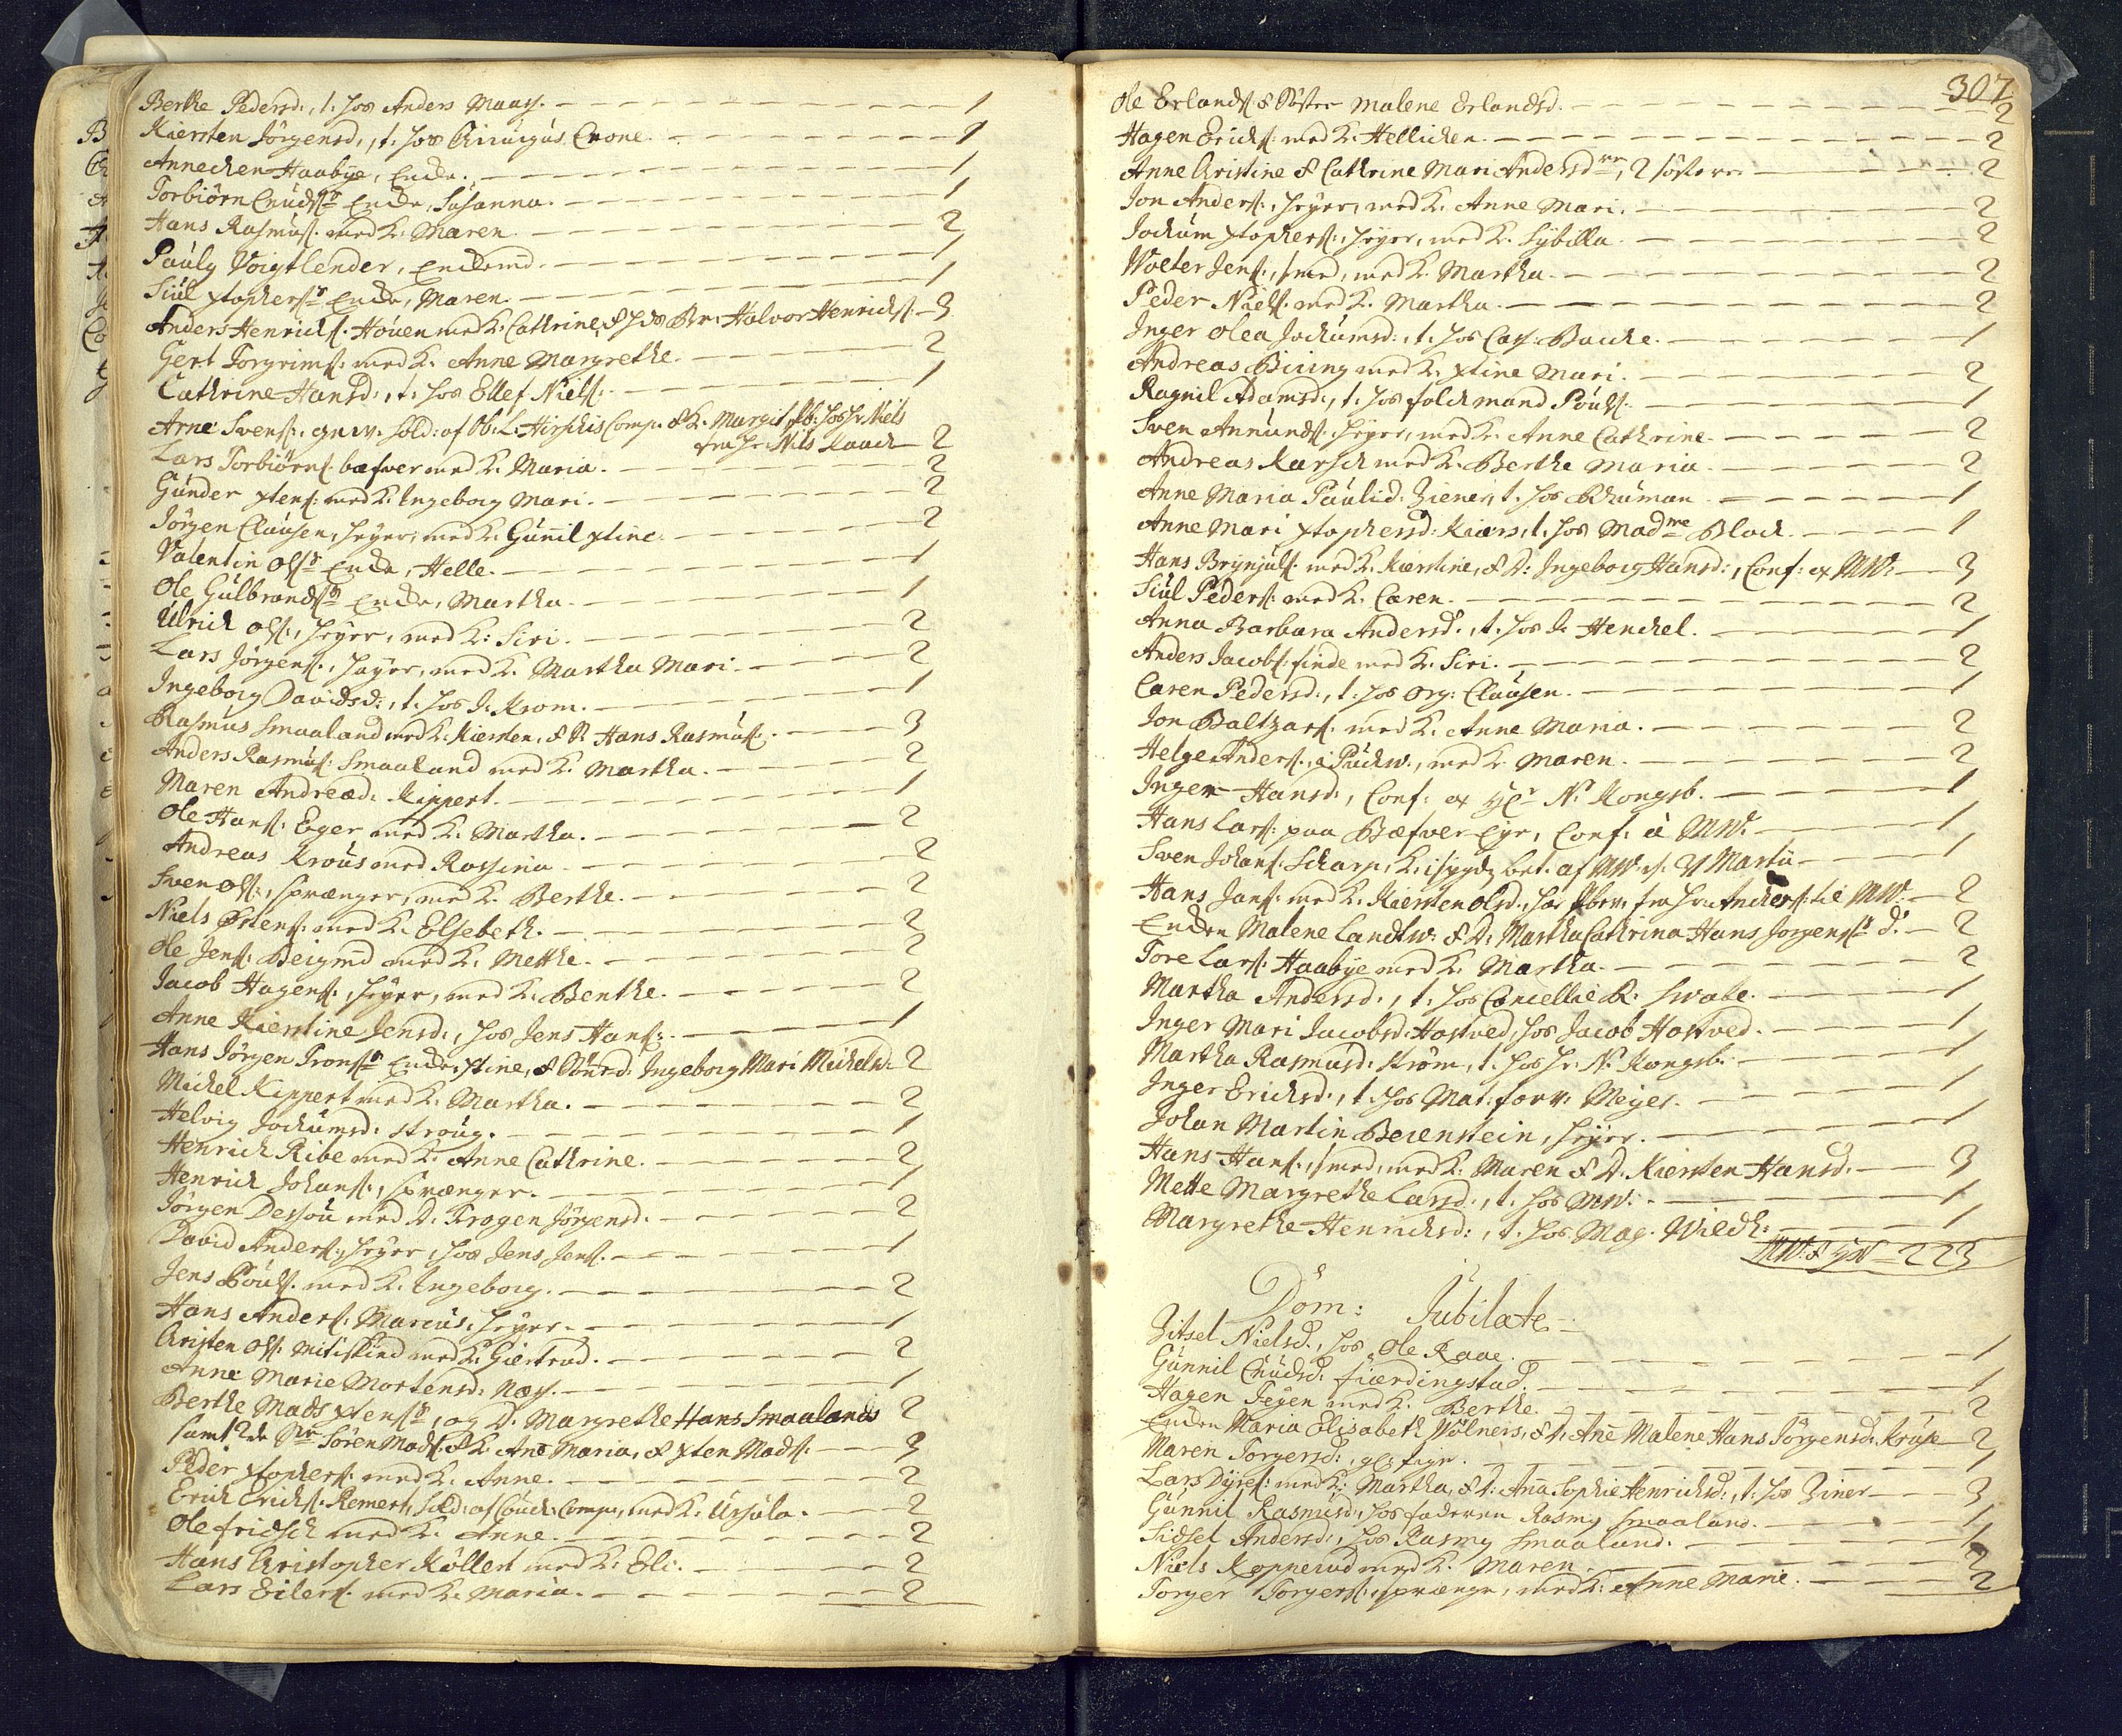 Berthe Pedersd:, t. hos Anders Maas. 1
Kiersten Jörgensd:, t. hos Chirurgus Crone. 1
Annechen Haabye, Encke. 1
Torbiörn Cnudsßn Encke, Susanna. 1
Hans Rasmuß. med K. Maren. 2
Pauly Voigtlender, Enckemd. 1
Siul xtophersn Encke, Maren. 1
Anders Henrichs. Houen med K: Cathrine, & hds Br: Halvor Henrichs: 3
Gert Torgrims: med K. Anne Margrethe. 2
Cathrine Hansd:, t. hos Ellef Niels: 1
Arne Svens:, gev. Sold: af Ob: L: Hirschis Comp: & K. Margit, hos Hr Niels
fra Hr: Nils Raach 2
Lars Torbiörns. bæfver med K. Maria. 2
Gunder xtens: med K. Ingeborg Mari. 2
Jörgen Clausen, heyer, med K. Gunnil xtine. 2
Valentin Olsn Encke, Helle. 1
Ole Gulbrandsn Encke, Martha. 1
Ulrich Ols:, heyer, med K: Siri. 2
Lars Jörgens., heyer, med K. Martha Mari. 2
Ingeborg Davidsd:, t. hos J. Krom. 1
Rasmus Smaaland med K. Kiersten, & S: Hans Rasmus: 3
Anders Rasmus: Smaaland med K. Martha. 2
Maren Andread: Kippert. 1
Ole Hans: Eger med K. Martha. 2
Andreas Krous med Rossina. 2
Sven Ols:, sprænger, med K. Berthe. 2
Niels Östens: med K. Elsebeth. 2
Ole Jens: Beigmd med K. Metthe. 2
Jacob Hagens:, heyer, med K. Benthe. 2
Anne Kierstine Jensd:, hos Jens Hans: 1
Hans Jörgen Pronsn Encke xtine, & Ingeborg Mari Michelsd: 2
Michel Kippert med K. Martha. 2
Helvig Jochumsd: Stroug. 1
Henrich Ribe med K. Anne Cathrine. 2
Henrich Johans:, sprænger. 1
Jörgen Dessou med D. Frogen Jörgensd. 2
David Anders:, heyer, hos Jens Jens. 1
Jens Pouls. med K. Ingeborg. 2
Hans Anders: Marcus, heyer. 1
Christen Ols: Mitiskind med K. Giertrud. 2
Anne Marie Mortensd: Næs. 1
Berthe Mads xtensn, og D. Margrethe Hans Smaalands 2
samt 2de Sönr Sören Mads: & K. Ane Maria, & xten Mads: 3
Peder xtophers: med K. Anne. 2
Erich Erichs: Remers, Sold: af Couch: Comp:, med K. Ursula. 2
Ole fridsch med K. Anne. 2
Hans Christopher Köllert med K. Eli. 2
Lars Eilers. med K. Maria. 2
307
Ole Erlands & Söster Malene Erlandsd. 2
Hagen Erichs: med K. Hellichen. 2
Anne Christine & Cathrine Mari Andersdre, 2 Söstere. 2
Jon Anders:, heyer, med K. Anne Mari. 2
Jochum xtophers:, heyer, med K. Sybilla. 2
Wolter Jens:, smed, med K. Martha. 2
Peder Niels. med K. Martha. 2
Inger Olea Jochumsd:, t. hos Cas: Bache. 1
Andreas Biring med K. xtine Mari. 2
Ragnil Adamsd:, t. hos folchmand Pouls. 1
Sven Annunds: heyer, med K. Anne Cathrine. 2
Andreas Karsch med K. Berthe Maria. 2
Anne Maria Paulid: Ziener, t. hos Schuman. 1
Anne Mari xtophersd: Kiærs, t. hos Madme Bloch. 1
Hans Brynjuls: med K. Kierstine, & D: Ingeborg Hansd:, Conf: ex MW: 3
Siul Peders: med K. Caren. 2
Anna Barbara Andersd:, t. hos J. Henckel. 1
Anders Jacobs: finde med K. Siri. 2
Caren Pedersd:, t. hos Org: Clausen. 1
Jon Baltzars. med K. Anne Maria. 2
Helge Anders:, i Puchw., med K. Maren. 2
Inger Hansd:, Conf: ex N. Kongsb. 1
Hans Lars: paa Bæfver Eye, Conf: à MW. 1
Sven Johans: Scharp, K: syg, bet. af MW. Martii 1
Hans Jans: med K. Kiersten Olsd:, fra Hr: Anchers: til MW. 2
Encken Malene Landtw: & D: Martha Cathrina Hans Jorgensns D: 2
Tore Lars: Haabye med K. Martha. 2
Martha Andersd:, t. hos Cancellie R. Svabe. 1
Inger Mari Jacobsd: Hostved, hos Jacob Hostved. 1
Martha Rasmusd: Ström, t. hos Hr: N. Kongsb. 1
Inger Erichsd:, t. hos Mat: forv: Meyer. 1
Johan Martin Berenstein, heyer. 1
Hans Hans:, smed, med K. Maren & D. Kiersten Hansd. 3
Mette Margrethe Larsd:, t. hos MW. 1
Margrethe Henrichsd:, t. hos Mag. Wildh: 1
223
Dom: Jubilate
Zitsel Nielsd:, hos Ole Raae. 1
Gunnil Cnudsd: fiærdingstad. 1
Hagen Teyen med K. Berthe. 2
Encken Maria Elisabeth Wölners, & D: Ane Malene Hans Jörgensd: Kruse 2
Maren Torgersd:, gl: pige. 1
Lars Dyres: med K: Martha, & D: Anna Sophie Henrichsd:, t. hos Ziner 3
Gunnil Rasmusd:, hos faderen Rasmus Smaaland. 1
Sidsel Andersd:, hos Rasmus Smaaland. 1
Niels Kopperud med K. Maren. 2
Torger Torgers:, sprænger, med K: Anne Marie. 2